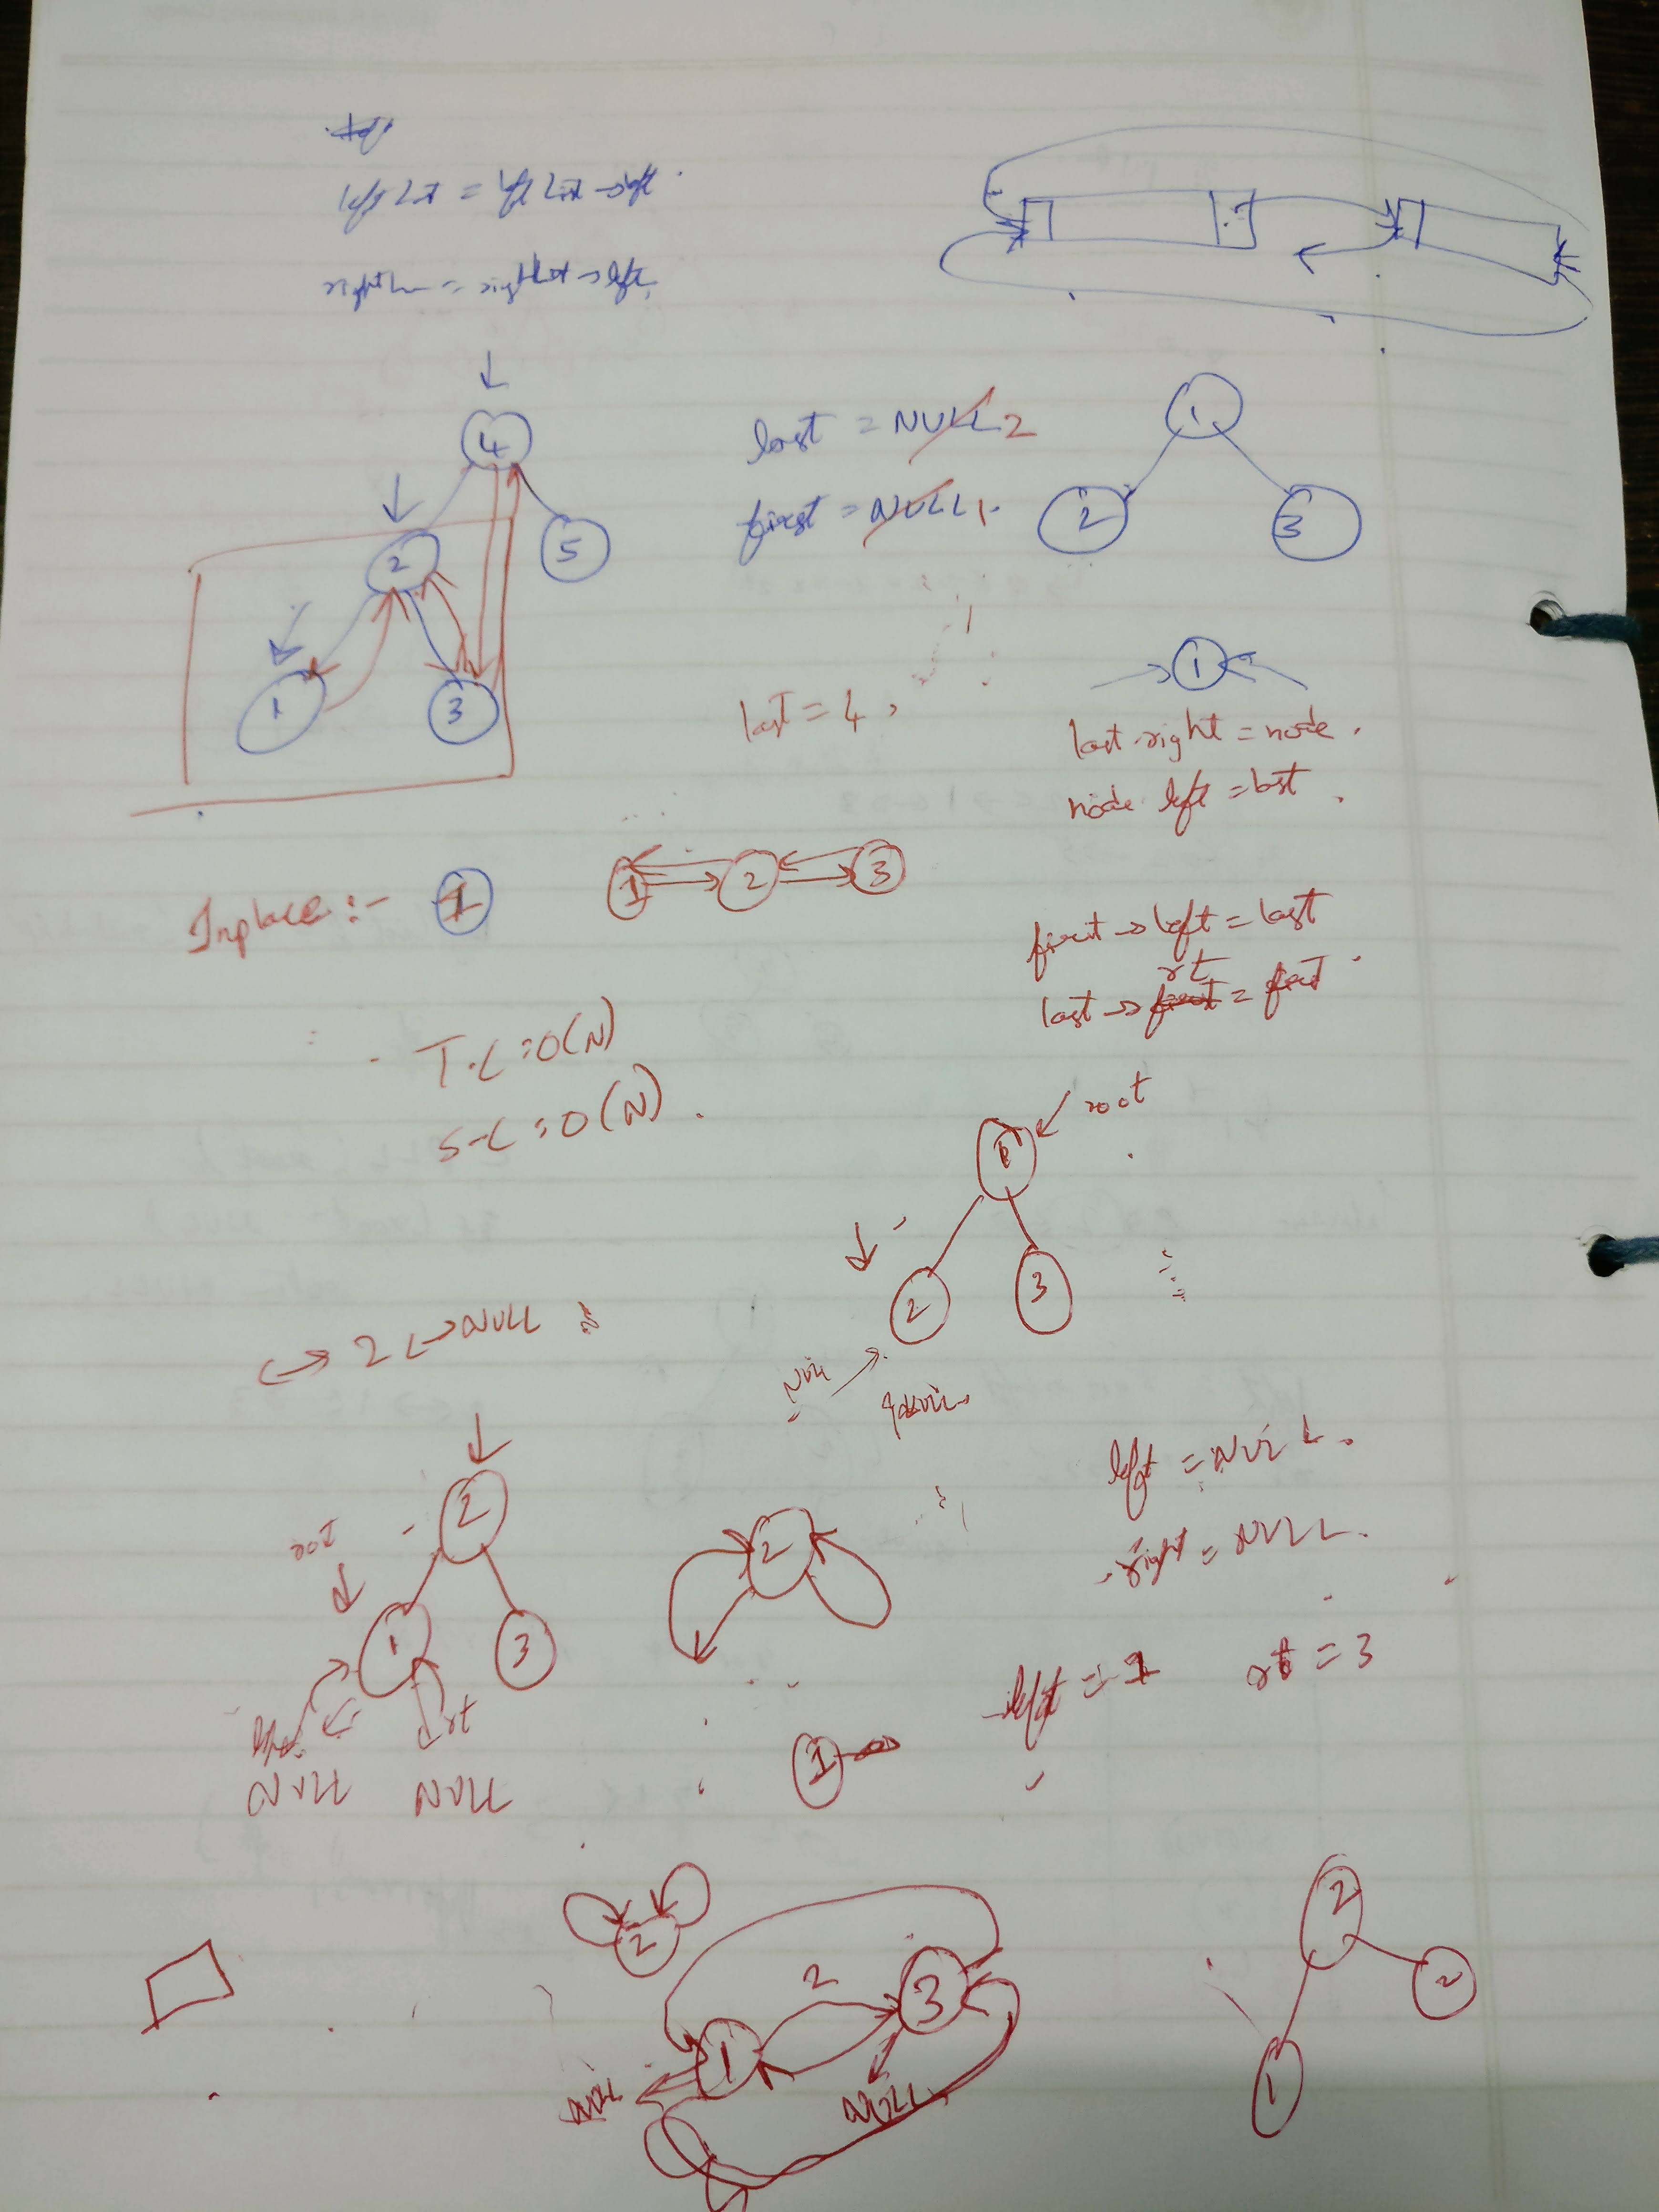 left List = left List → left.
right = rightList → left;
4
2
5
1
3
last = NULL 2
first = NULL 1.
1
2
3
last = 4,
1
last.right = node.
node.left = last.
Inplace :- 1
1 2 3
first → left = last
rt
last → first = first.
T.C : O(N)
S.C : O(N).
root
1
2
3
↪ 2 ↪ NULL
NULL
left = NULL.
right = NULL.
2
root
1
3
rt
NULL NULL
2
left = 1 rt = 3
1
2
2
1
3
NULL
NULL
2
2
1